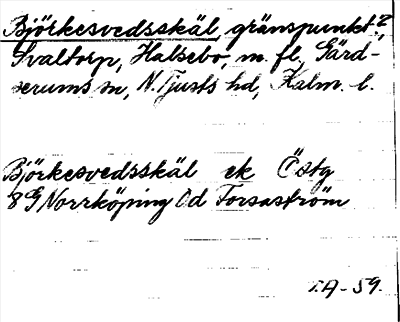 Björkesvedsskäl, gränspunkt?,
Svaltorp, Halsebo, m. fl., Gärd-
serums sn, N. Tjusts hd, Kalm. l.
Björkesvedsskäl ek Östg
8G Norrköping 0d Forsaström
T.A-59.